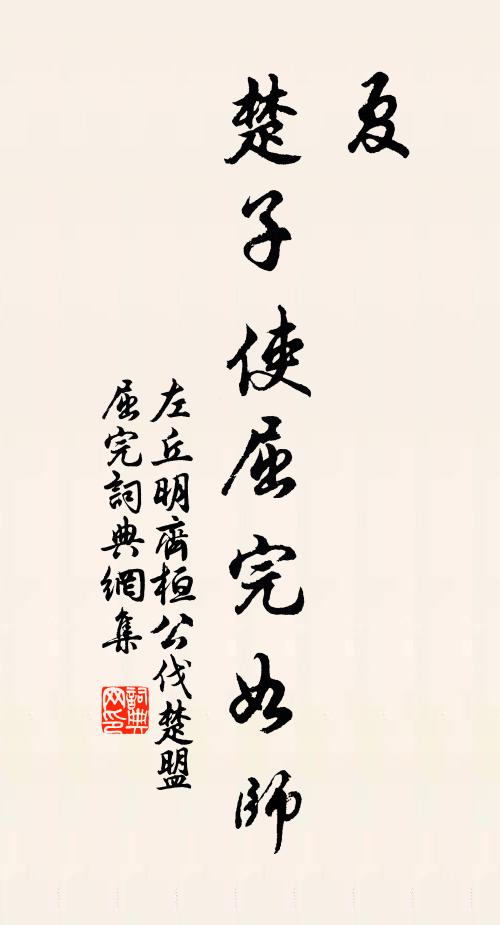 夏
楚子使屈完如師
左丘明齊桓公伐楚盟
屈完詞典網集
詞典
网印